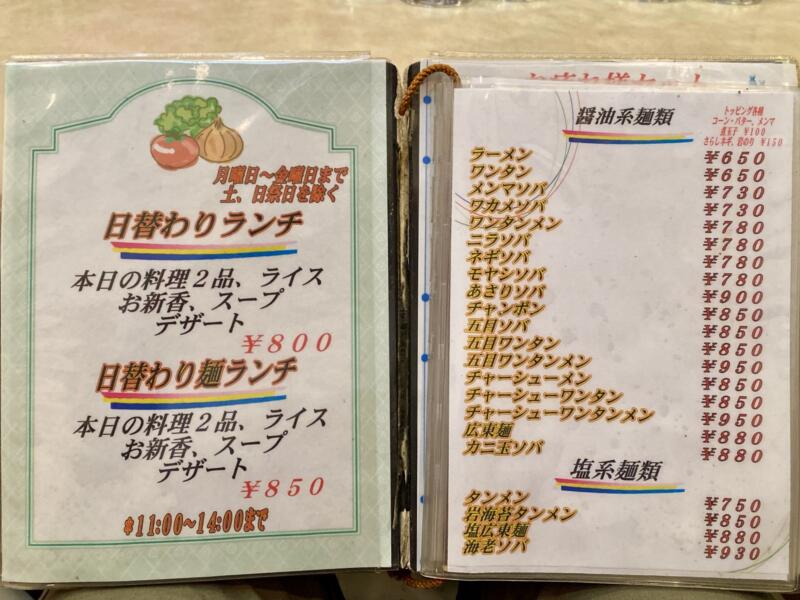 月曜日～金曜日まで
土、日祭日を除く
日替わりランチ
本日の料理２品、ライス
お新香、スープ
デザート
¥800
日替わり麺ランチ
本日の料理２品、ライス
お新香、スープ
デザート
¥850
*11:00～14:00まで
醤油系麺類
トッピング各種
コーン・バター、メンマ
煮玉子 ¥100
さらしネギ、岩のり ¥150
ラーメン ¥650
ワンタン ¥650
メンマソバ ¥730
ワカメソバ ¥730
ワンタンメン ¥780
ニラソバ ¥780
ネギソバ ¥780
モヤシソバ ¥780
あさりソバ ¥900
チャンポン ¥850
五目ソバ ¥850
五目ワンタン ¥850
五目ワンタンメン ¥950
チャーシューメン ¥850
チャーシューワンタン ¥850
チャーシューワンタンメン ¥950
広東麺 ¥880
カニ玉ソバ ¥880
塩系麺類
タンメン ¥750
岩海苔タンメン ¥850
塩広東麺 ¥880
海老ソバ ¥930